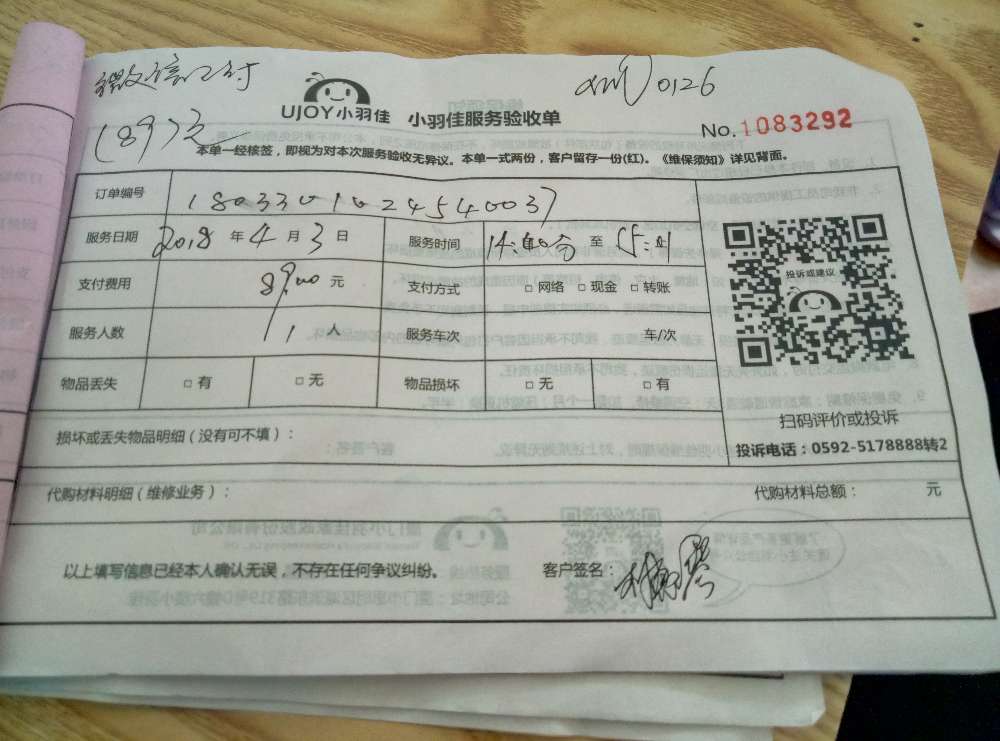 微信已付
(89)元
0126
UJOY小羽佳 小羽佳服务验收单
No. 1083292
本单一经核签，即视为对本次服务验收无异议。本单一式两份，客户留存一份(红)。《维保须知》详见背面。
订单编号 180330102454003
服务日期 2018 年 4 月 3 日 服务时间 至
支付费用 89.00 元 支付方式 □ 网络 □ 现金 □ 转账
服务人数 1 人 服务车次 车/次
物品丢失 □ 有 □ 无 物品损坏 □ 无 □ 有
投诉或建议
扫码评价或投诉
投诉电话：0592-5178888转2
损坏或丢失物品明细（没有可不填）：
代购材料明细（维修业务）： 代购材料总额： 元
以上填写信息已经本人确认无误，不存在任何争议纠纷。 客户签名：